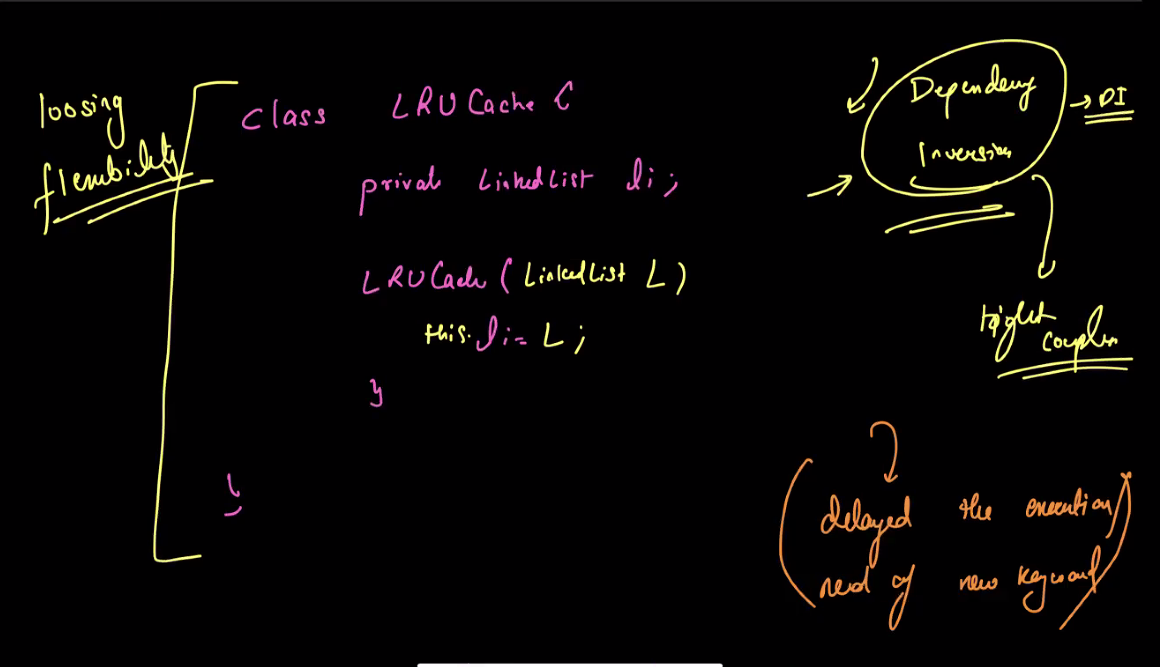 loosing
flexibility
class LRUCache {
private LinkedList li;
LRUCache ( LinkedList L)
this.li = L ;
}
}
Dependency
Inversion
→ DI
tight
coupling
delayed the execution
need of new keyword